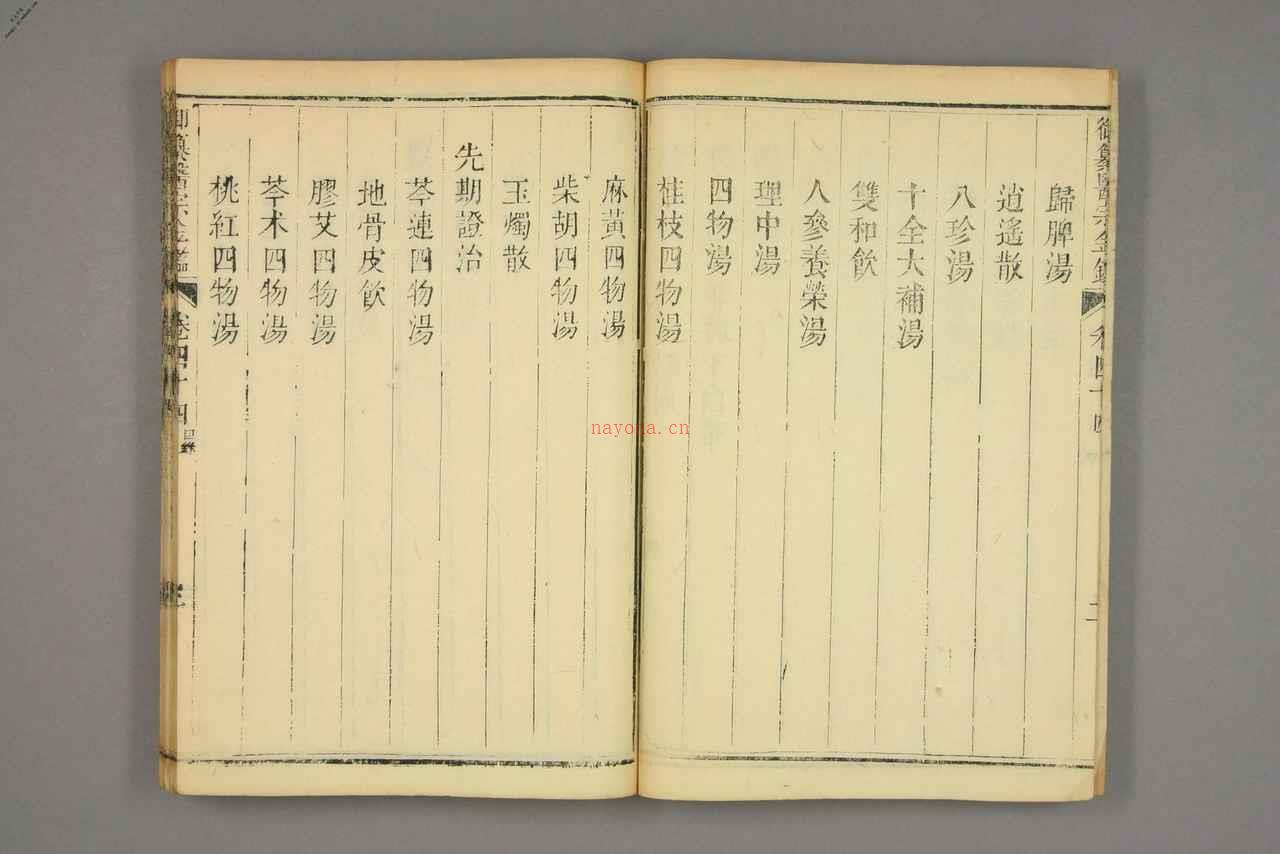 御纂醫宗金鑑 卷四十四 二
歸脾湯
逍遙散
八珍湯
十全大補湯
雙和飲
人參養榮湯
理中湯
四物湯
桂枝四物湯
麻黃四物湯
柴胡四物湯
玉燭散
先期證治
芩連四物湯
地骨皮飲
膠艾四物湯
芩术四物湯
桃紅四物湯
御纂醫宗金鑑 卷四十四 目錄
nayona.cn